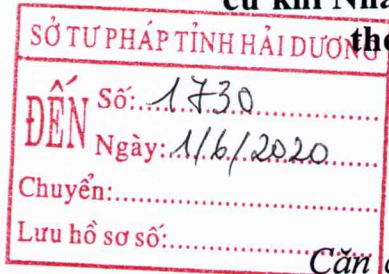 cư khi Nhà
SỞ TƯ PHÁP TỈNH HẢI DƯƠNG
ĐẾN
Số: 1730
Ngày: 1/6/2020
Chuyển:
Lưu hồ sơ số:
Căn